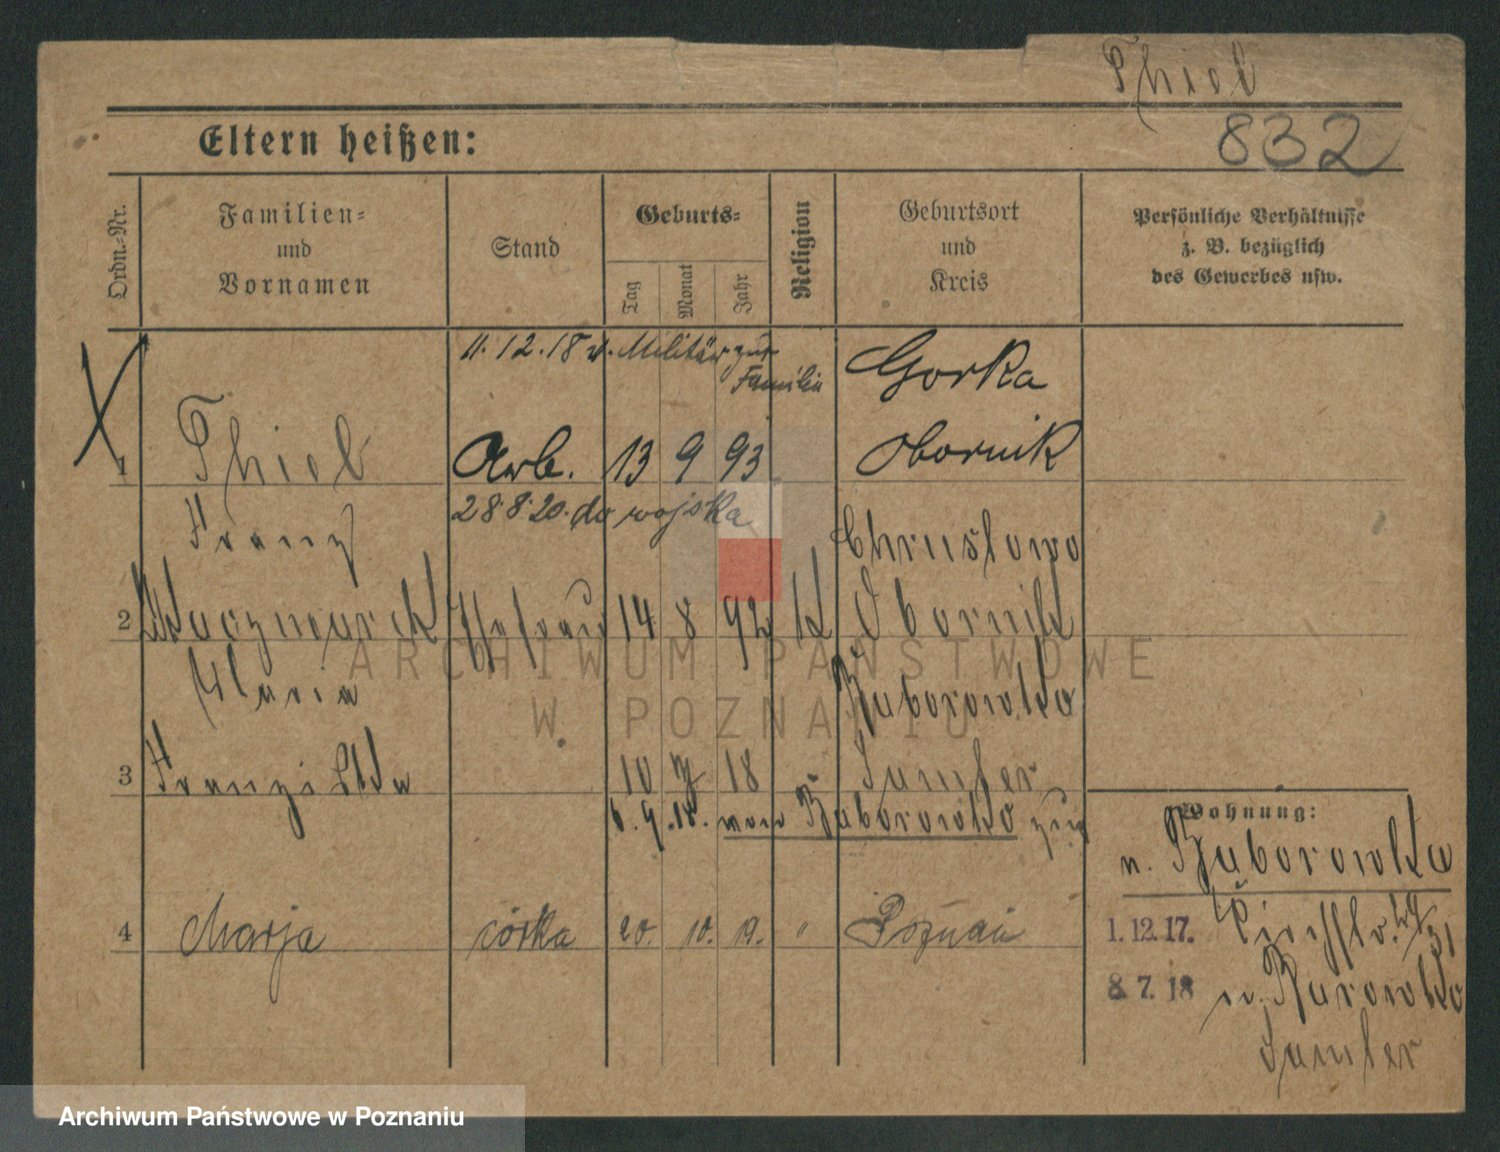 Thiel
Eltern heißen:
832
Ordn.-Nr.
Familien- und Vornamen
Stand
Geburts-
Tag
Monat
Jahr
Religion
Geburtsort und Kreis
Persönliche Verhältnisse z. B. bezüglich des Gewerbes usw.
11.12.18 v. Militär zur Familie
Gorka
1 Thiel Arb. 13 9 93 Obornik
Franz 28.8.20. do wojska
Chrustowo
2 Kaczmarek Ehefrau 14 8 92 K Obornik
Maria
Baborowko
3 Franziska 10 7 18 Samter
6.9.18. von Baborowko zur
Wohnung:
n. Baborowko
4 Marja córka 20. 10. 19. " Poznań
1.12.17.
31
8.7.18
Samter
ARCHIWUM PAŃSTWOWE
W POZNANIU
Archiwum Państwowe w Poznaniu